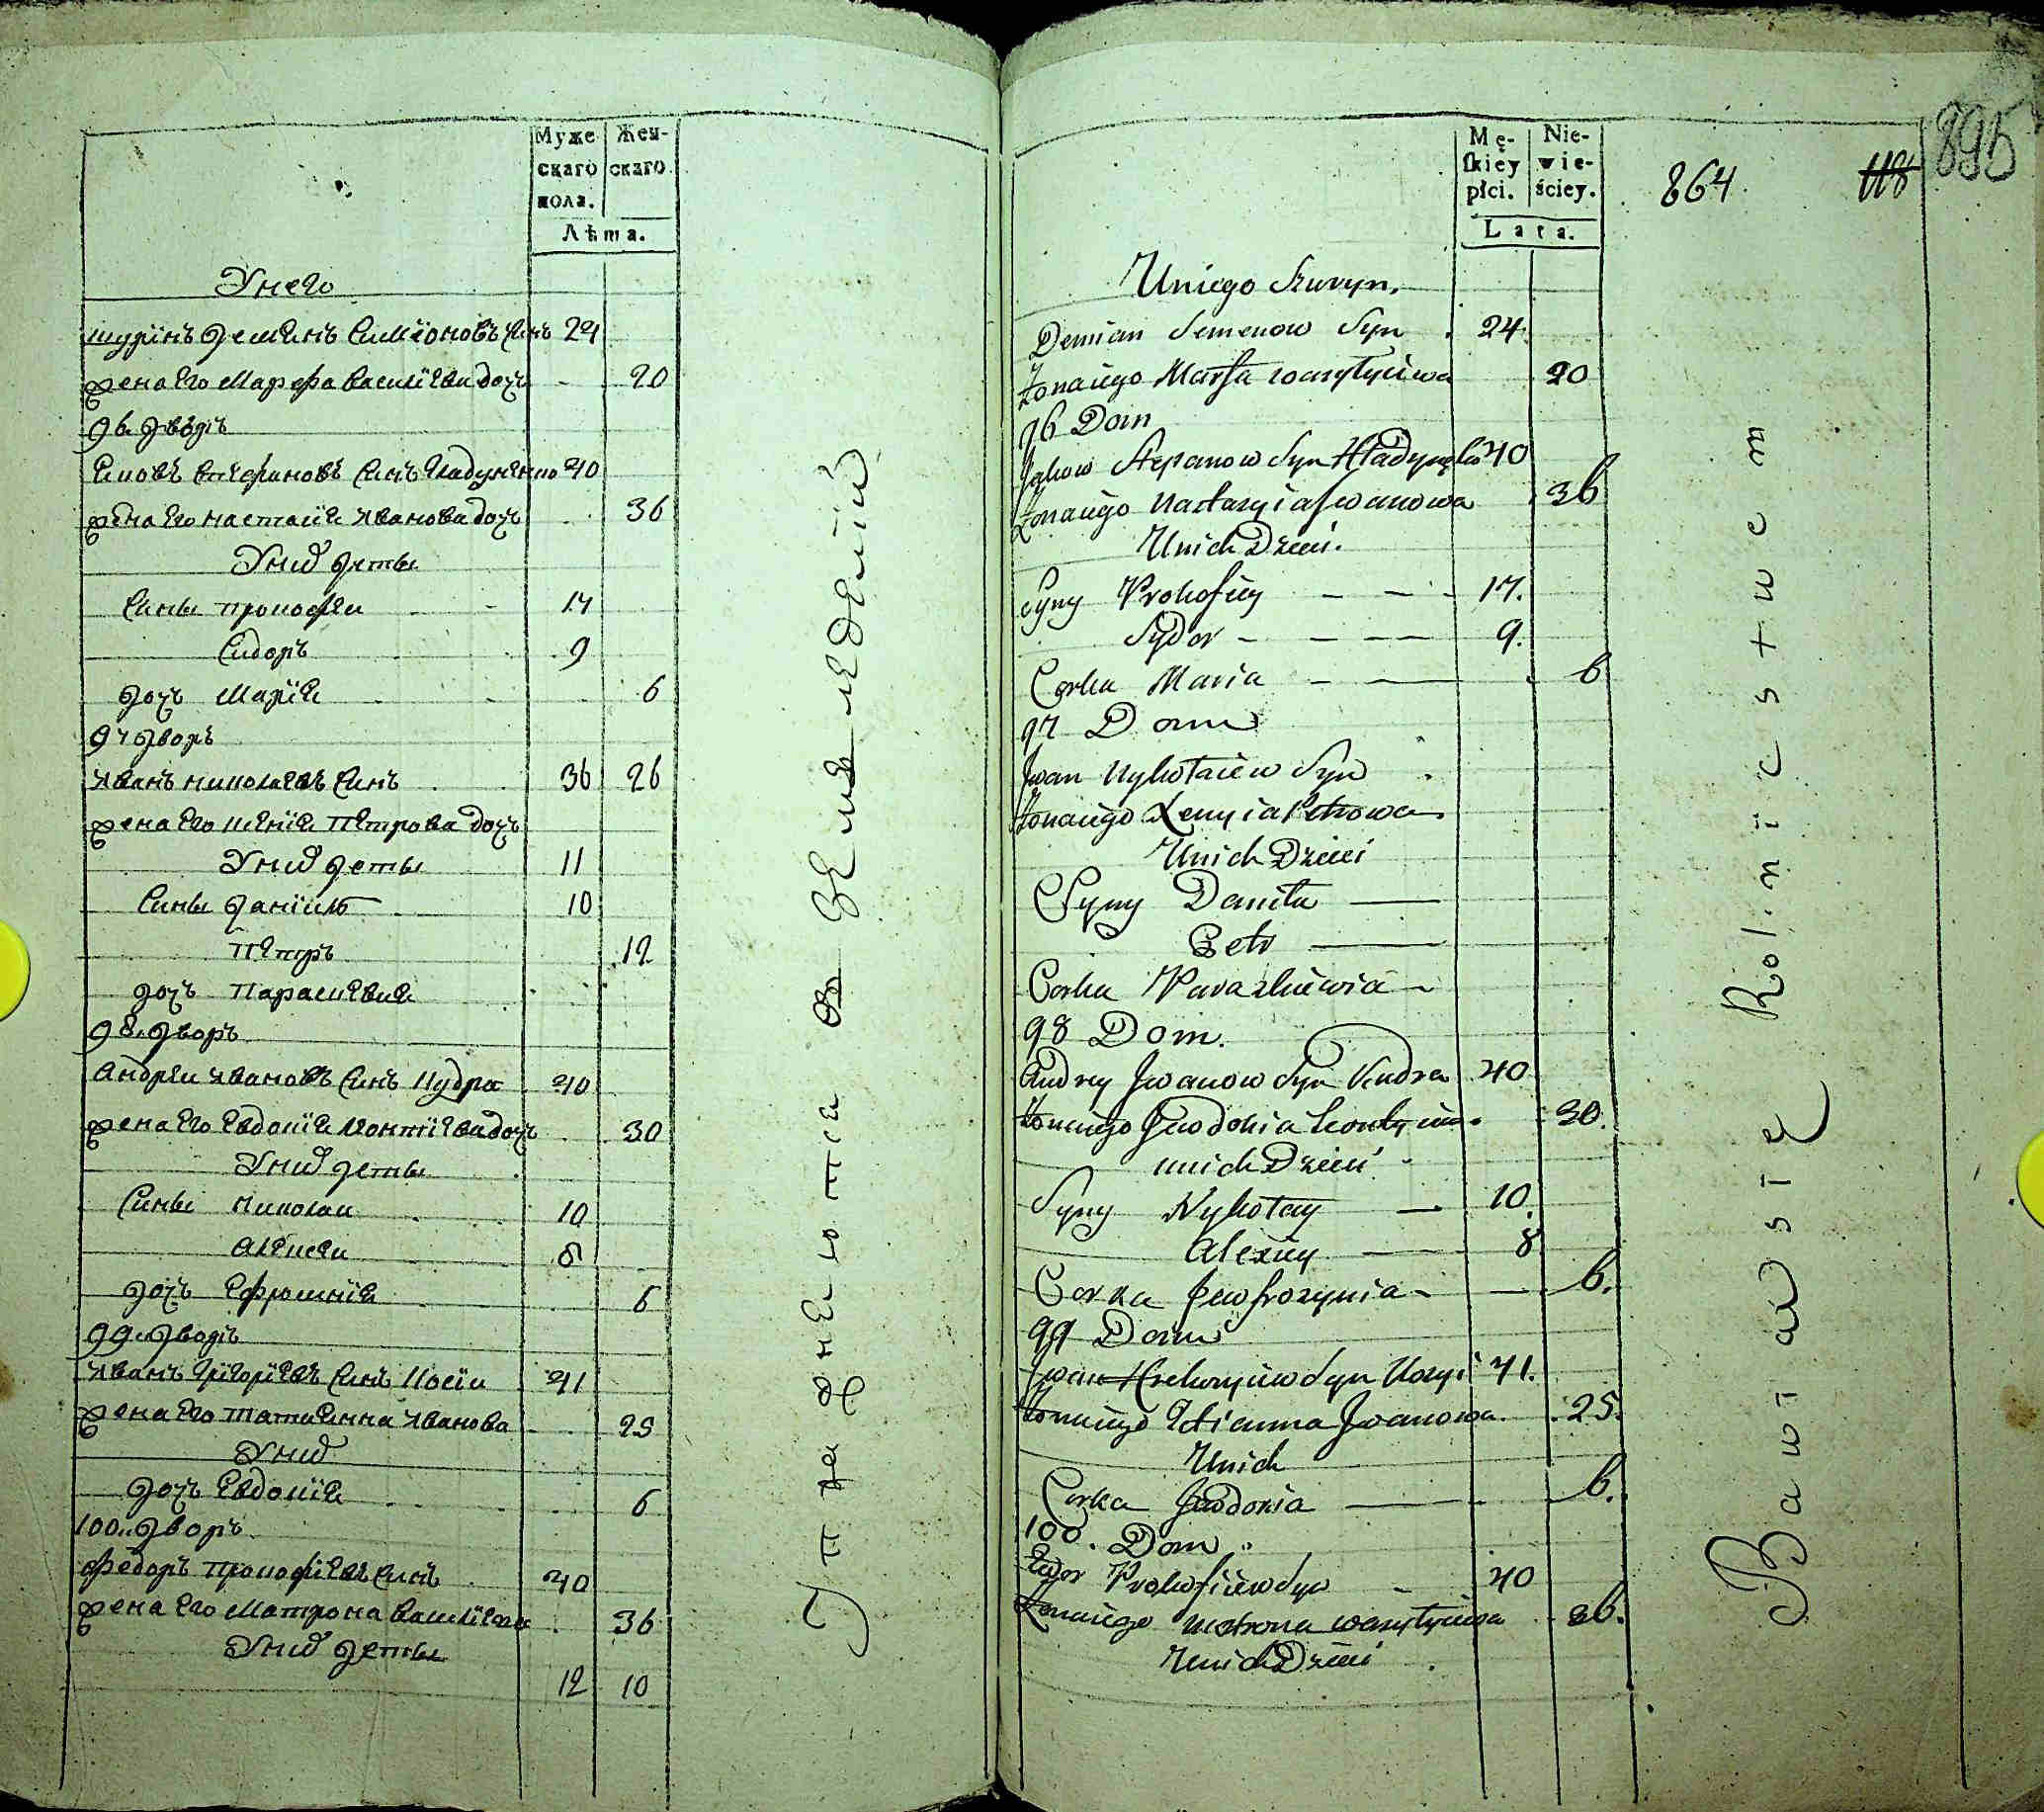 Муже скаго пола.
Жен- скаго
Лѣта.
Унего
шуринъ Демянъ Симеоновъ Синъ 24
жена Его Марфа Василиева дочъ - 20
96 Дворъ
Яковъ Стефановъ Синъ Гладуненко 40
жена Его Настасия Иванова дочъ 36
Уних Дети
Сины Прокофей - 17
Сидоръ 9
Дочъ Мария 6
97 Дворъ
Иванъ Николаевъ Синъ 36 26
жена Его Ксения Петрова дочъ
Уних Дети 11
Сины Даниилъ 10
Петръ 12
Дочъ Параскевия
98 Дворъ
Андрей Ивановъ Синъ Кудра 40
жена Его Евдокия Леонтиева дочъ 30
Уних Дети
Сины Николай 10
Алексей 8
Дочъ Ефросиния 6
99 Дворъ
Иванъ Григориевъ Синъ Косий 41
жена Его Татиянна Иванова 25
Уних
Дочъ Евдокия 6
100 Дворъ
Федоръ Прокофиевъ Синъ 40
жена Его Матрона Василиева 36
Уних Дети
12 10
Упражнеютса в земледелии
Mę- skiey płci.
Nie- wie- ściey.
Lata.
864. 118 895
Uniego Szuryn.
Demian Semenow Syn . 24.
Zonaiego Marfa wasyłyiewa 20
96 Dom
Jakow Stepanow Syn Hładynęko 40
Zonaiego Nastazyia Jwanowa 36
Unich Dzieci.
Syny Prokofiey - - - 17.
Sydor - - - - 9.
Corka Maria - - 6
97 Dom
Jwan Nykołaiew Syn .
Zonaiego Xenyia Petrowa
Unich Dzieci
Syny Daniła -
Petr -
Corka Paraskiewia -
98 Dom.
Andrey Jwanow Syn Kudra 40
Zonaiego Jewdokia Leontyiew. 30.
unich Dzieci
Syny Nykołay - 10.
Alexiey - 8
Corka Jewfrozynia - - 6.
99 Dom
Jwan Hrehoryiew Syn Kosyi 41.
Zonaiego Tetianna Jwanowa. 25.
Unich
Corka Jewdokia - 6.
100. Dom
Fedor Prokofiiew Syn - 40
Zonaiego Motrona wasyłyiewa 36.
Unich Dzieci
Bawiąw się Rolnictwem